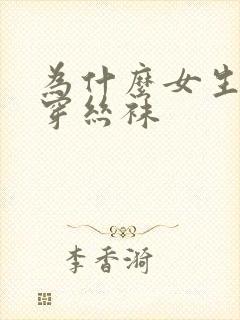 為什麼女生
穿絲襪
李香漪